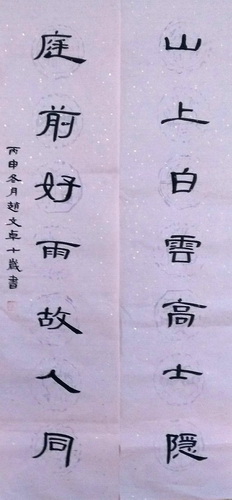 山上白雲高士隱
庭前好雨故人同
丙申冬月趙文卓十歲書